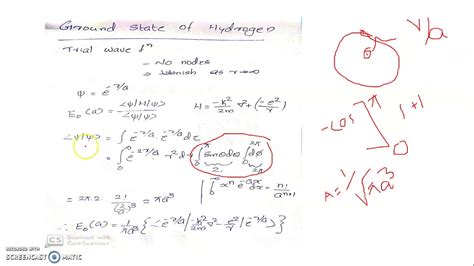 Ground State of Hydrogen
Trial wave fⁿ
- No nodes
- Vanish as r→∞
ψ = e^{-r/a}
E₀(a) = <ψ|H|ψ> / <ψ|ψ>    H = -ħ²/2m ∇² + (-e²/r)
<ψ|ψ> = ∫ e^{-r/a} e^{-r/a} dτ
= ∫₀^∞ e^{-2r/a} r² dr ∫₀^π sinθ dθ ∫₀^{2π} dφ
2.    2π
= 2π.2 2!/(2/a)³ = πa³    ∫₀^∞ xⁿ e^{-ax} dx = n!/a^{n+1}
∴ E₀(a) = 1/πa³ {<e^{-r/a}| -ħ²/2m ∇² - e²/r |e^{-r/a}>}
r/a
-cos
π
0
1+1
A = 1/√πa³
CS Scanned with CamScanner
RECORDED WITH
SCREENCAST MATIC